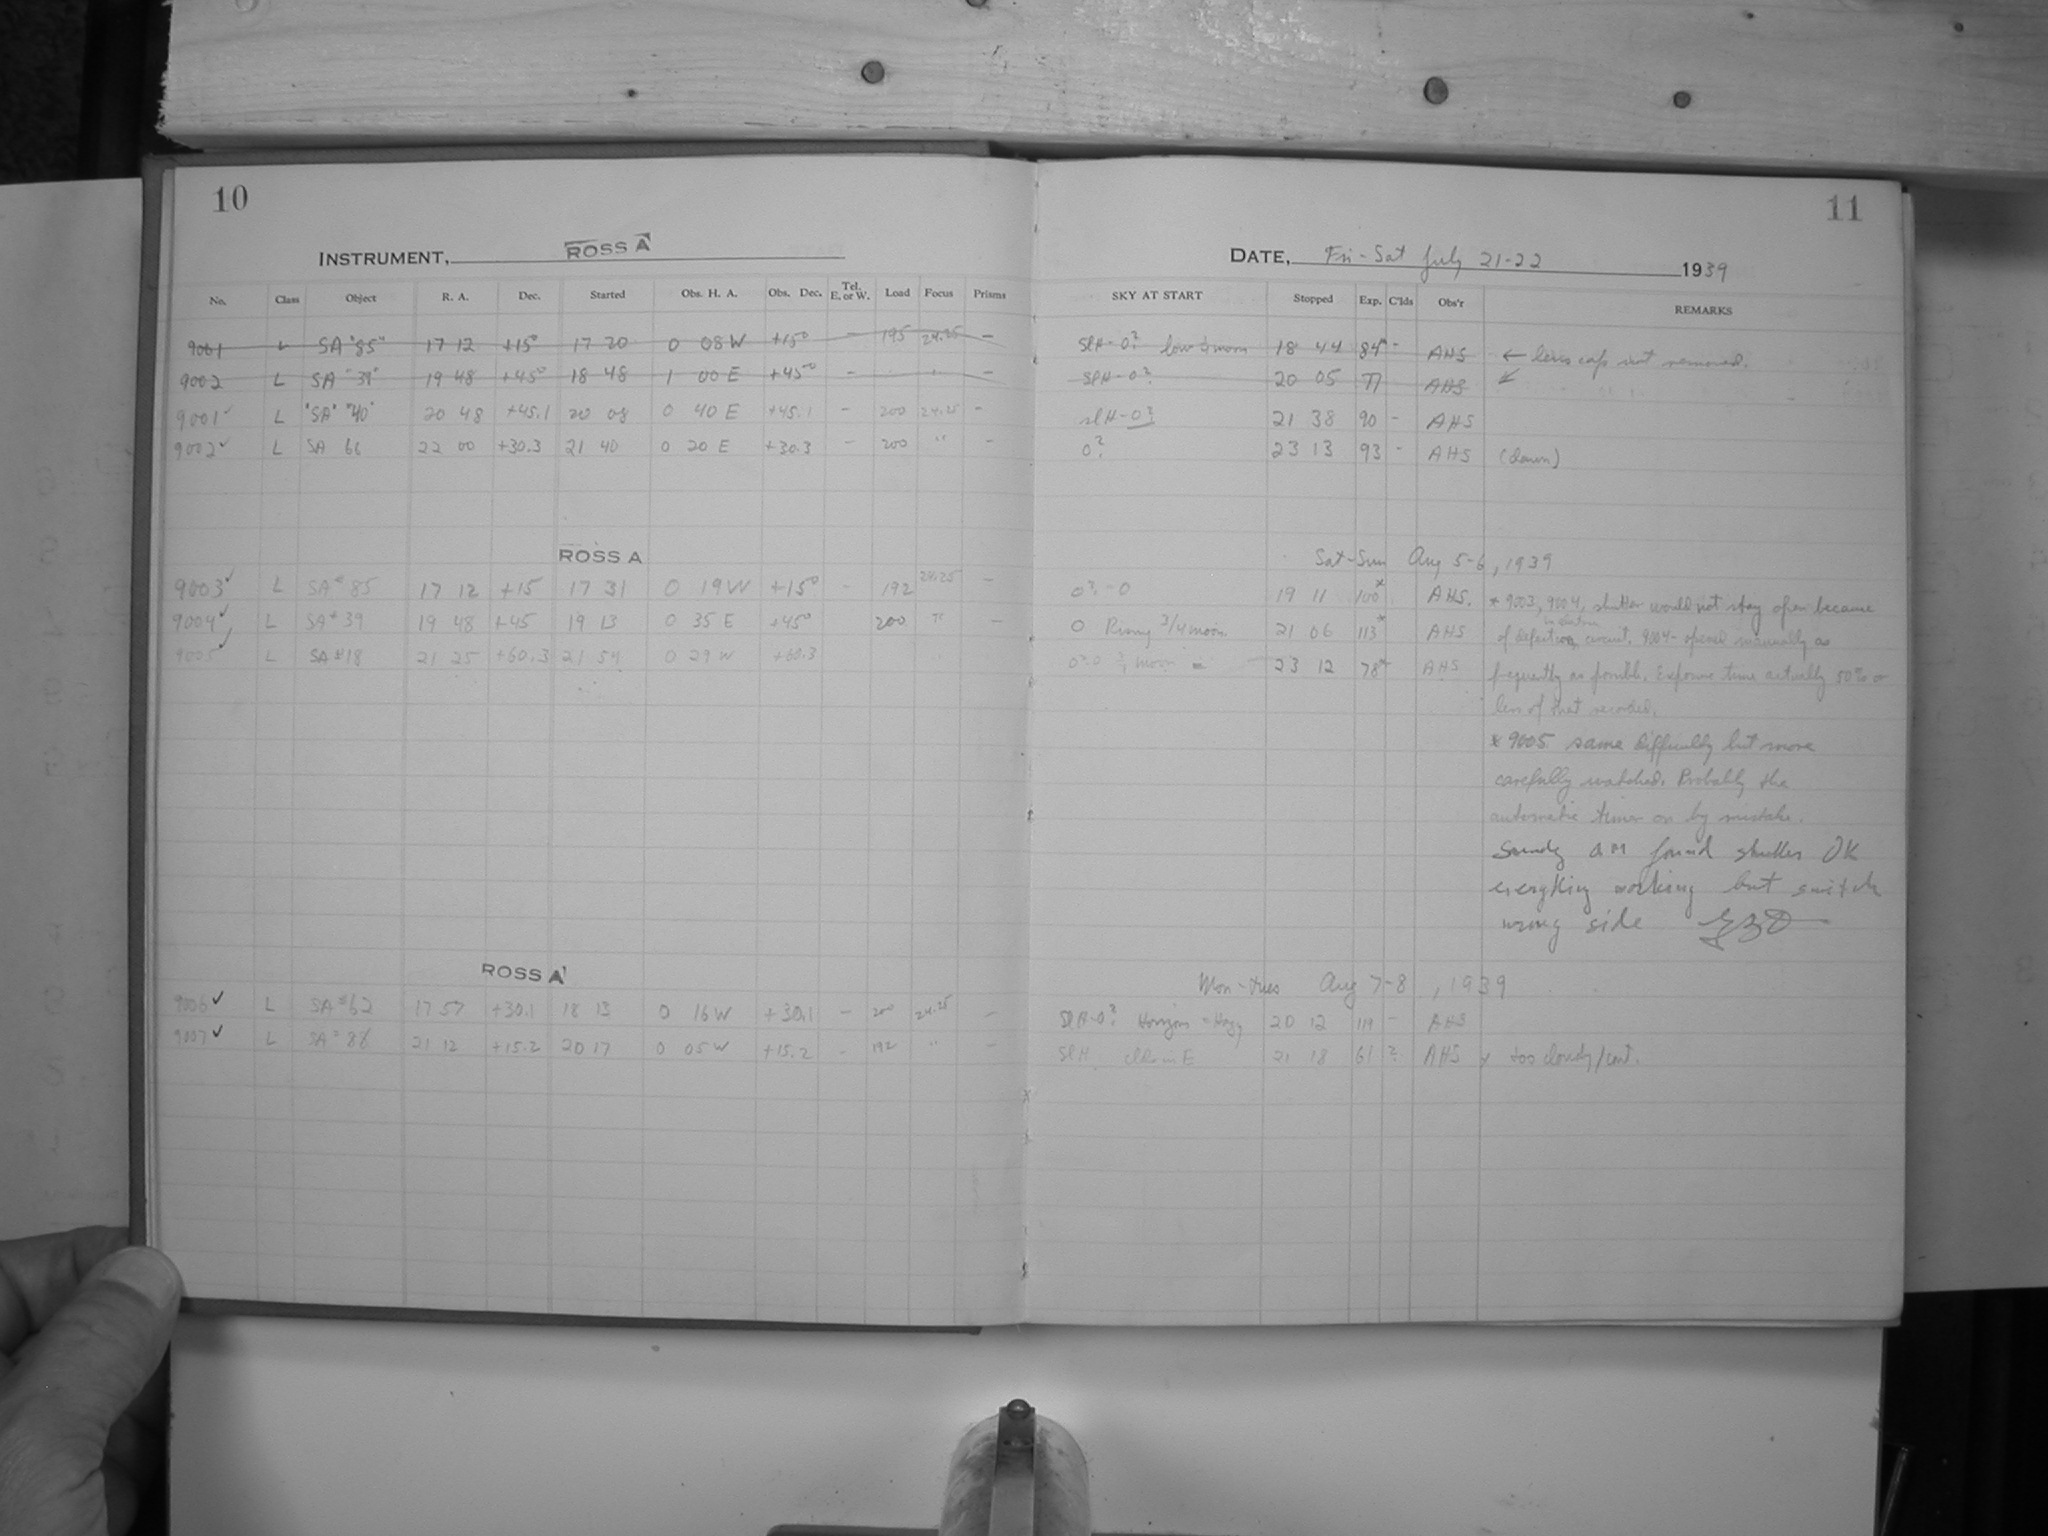 10
11
INSTRUMENT, ROSS A
DATE, Fri - Sat July 21-22 1939
No. Class Object R. A. Dec. Started Obs. H. A. Obs. Dec. Tel. E. or W. Load Focus Prisms SKY AT START Stopped Exp. C'lds Obs'r REMARKS
9001 L SA "85" 17 12 +15° 17 20 0 08 W +15° - 195 24.25 - SlH-0? low moon 18 44 84* - AHS ← lens cap not removed.
9002 L SA "39" 19 48 +45° 18 48 1 00 E +45° - " - SlH-0? 20 05 77 AHS ↙
9001 ✓ L "SA" "40" 20 48 +45.1 20 08 0 40 E +45.1 - 200 24.25 - slH-0? 21 38 90 - AHS
9002 ✓ L SA 66 22 00 +30.3 21 40 0 20 E +30.3 - 200 " - 0? 23 13 93 - AHS (dawn)
ROSS A
Sat-Sun Aug 5-6, 1939
9003 ✓ L SA# 85 17 12 +15 17 31 0 19 W +15° - 192 24.25 - 0?-0 19 11 100* AHS. * 9003, 9004, shutter would not stay open because
9004 ✓ L SA# 39 19 48 +45 19 13 0 35 E +45° 200 " - 0 Rising 3/4 moon. 21 06 113* AHS of defect in circuit. 9004 - opened manually as
9005 ✓ L SA #18 21 25 +60.3 21 54 0 29 W +60.3 moon 23 12 78* AHS frequently as possible. Exposure time actually 50% or
less of that recorded.
* 9005 same difficulty but more
carefully watched. Probably the
automatic timer on by mistake.
Sunday AM found shutter OK
everything working but switch
wrong side
ROSS A
Mon-Tues Aug 7-8, 1939
9006 ✓ L SA #62 17 57 +30.1 18 13 0 16 W +30.1 - 200 24.25 - SlH-0? Horizon Hazy 20 12 119 - AHS
9007 ✓ L SA# 88 21 12 +15.2 20 17 0 05 W +15.2 - 192 " - SlH clds in E 21 18 61 ? AHS too cloudy/cont.